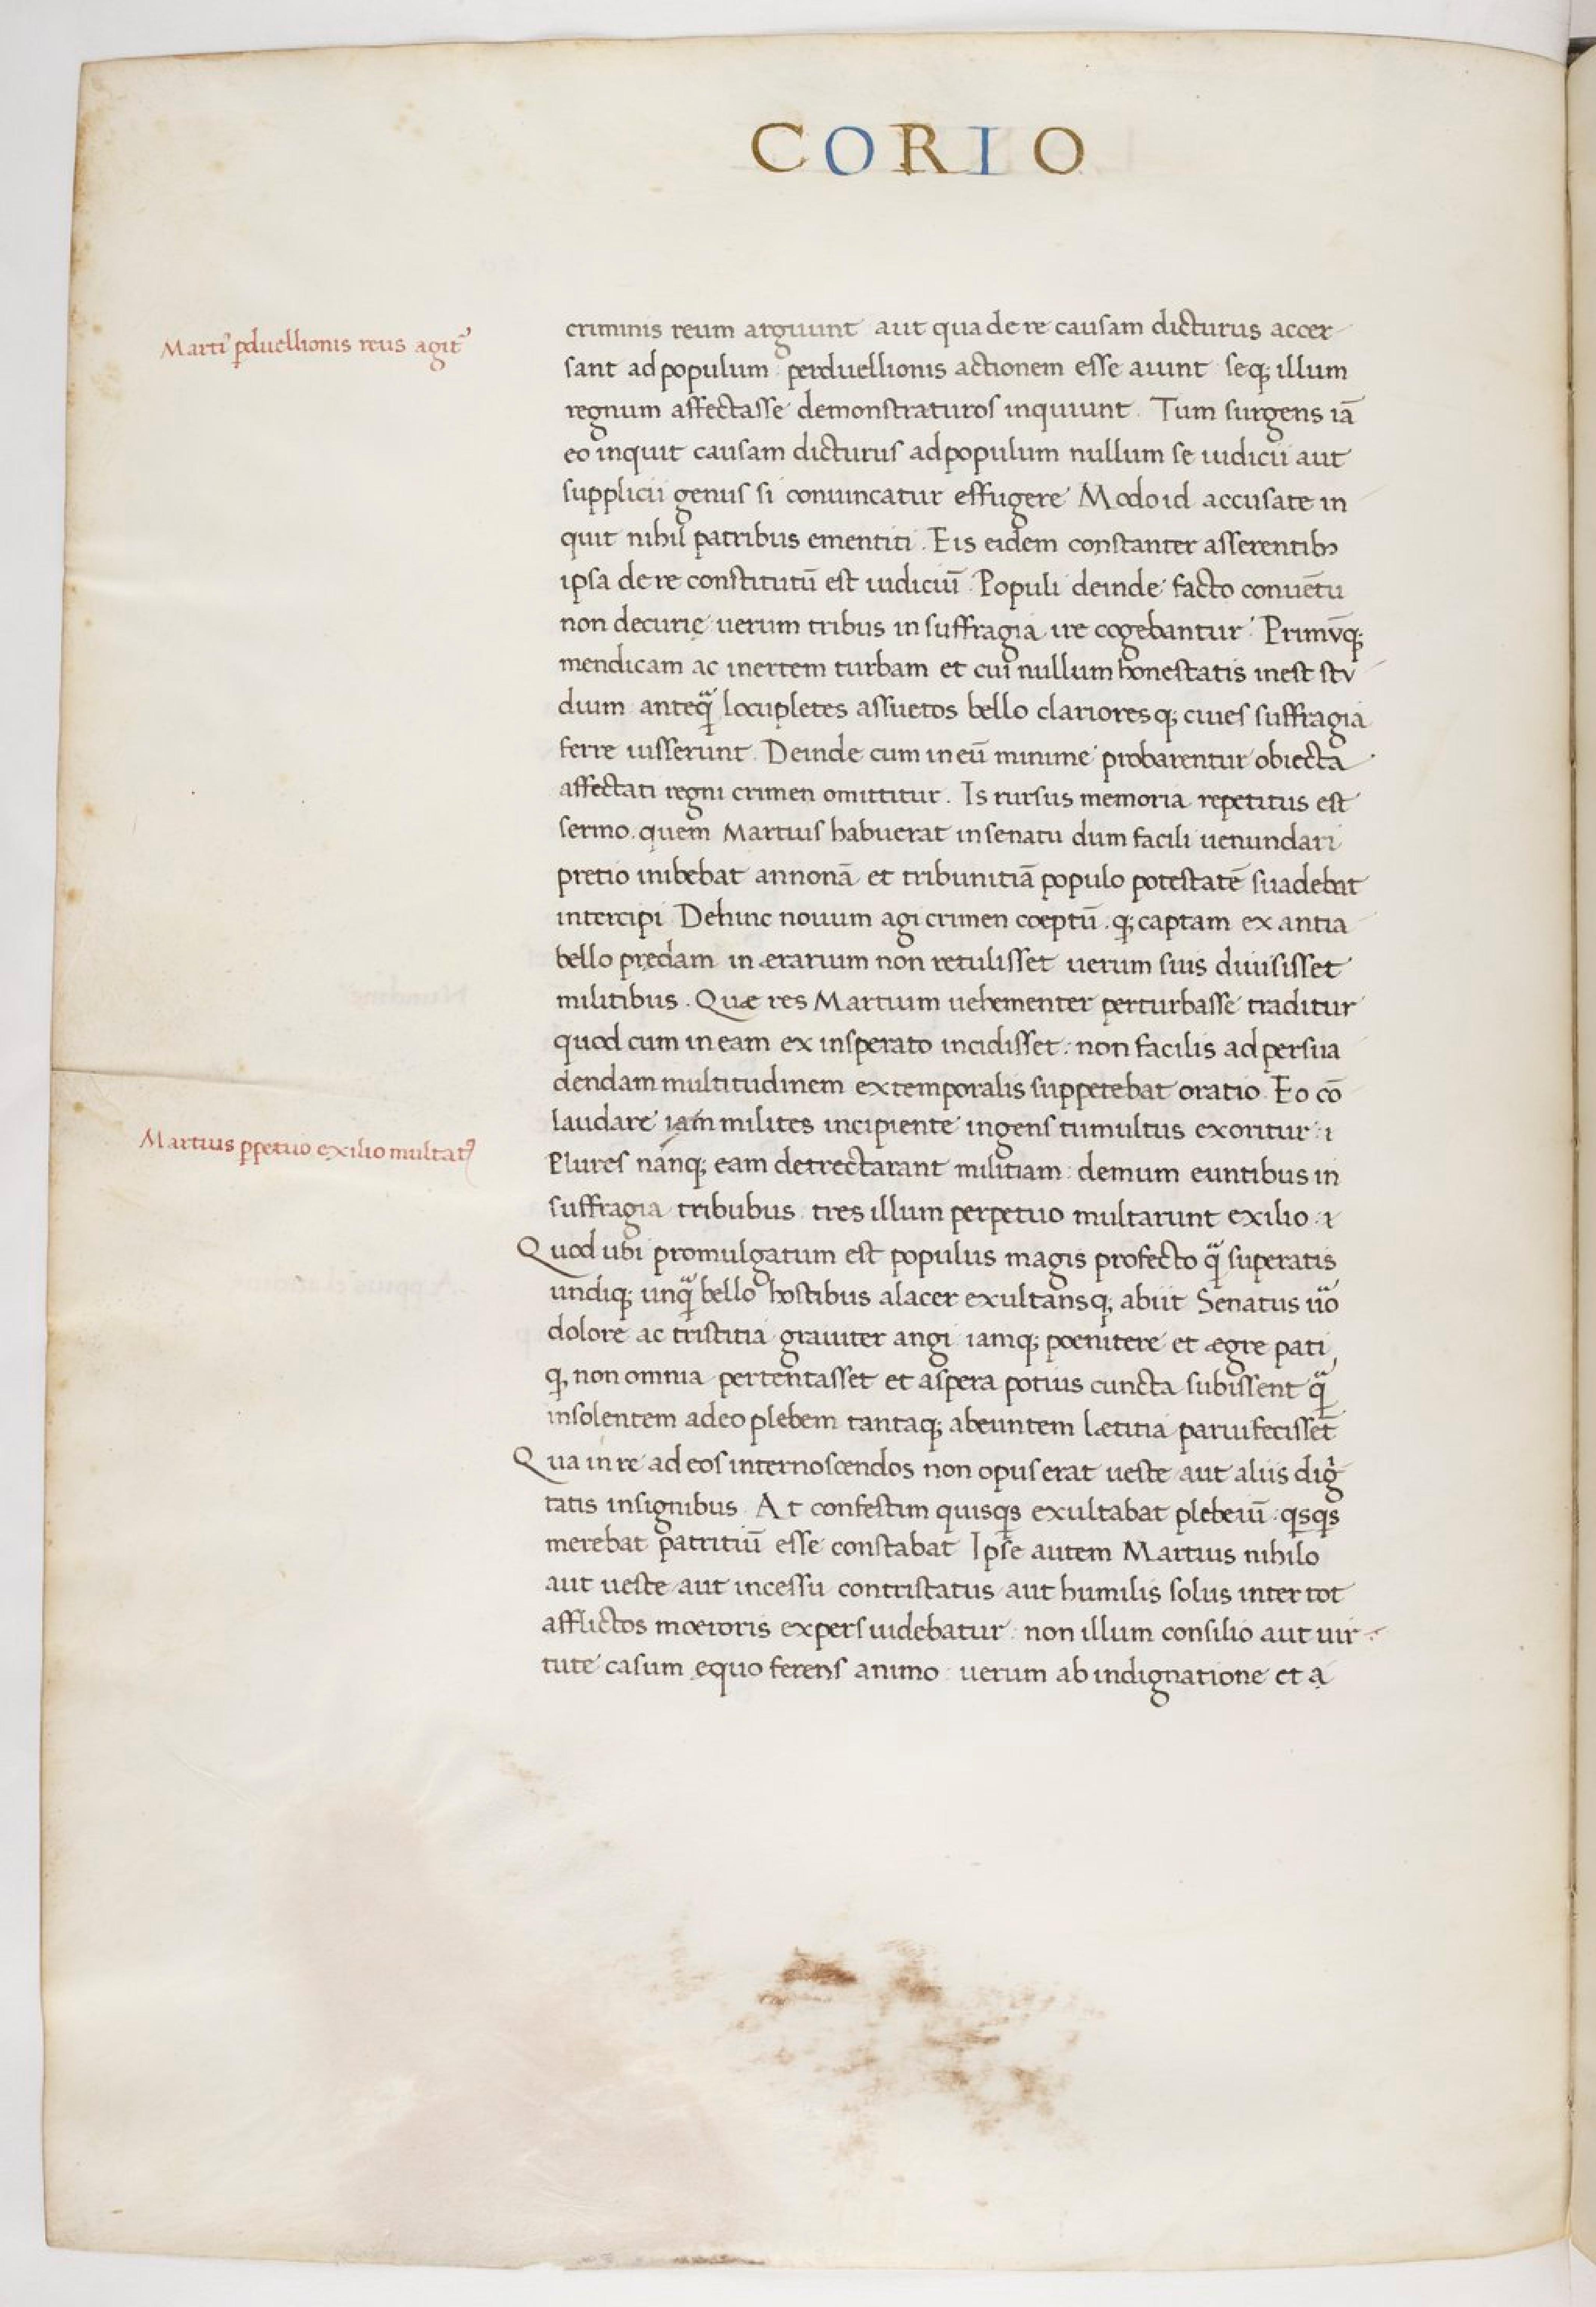 CORIO
Marti᾿ ꝑduellionis reus agit᷑
criminis reum arguunt aut qua de re causam dicturus accer
sant ad populum perduellionis actionem esse aiunt seq; illum
regnum affectasse demonstraturos inquiunt. Tum surgens iā
eo inquit causam dicturus ad populum nullum se iudicii aut
supplicii genus si conuincatur effugere Modo id accusate in
quit nihil patribus ementiti. Eis eidem constanter asserentibꝫ
ipsa de re constitutū est iudiciū. Populi deinde facto conuētu
non decurię uerum tribus in suffragia ire cogebantur. Primv̄q;
mendicam ac inertem turbam et cui nullum honestatis inest stv
dium anteq̃ locupletes assuetos bello clarioresq; ciues suffragia
ferre iusserunt. Deinde cum in eū minime probarentur obiecta
affectati regni crimen omittitur. Is rursus memoria repetitus est
sermo. quem Martius habuerat in senatu dum facili uenundari
pretio inibebat annonā et tribunitiā populo potestatē suadebat
intercipi Dehinc nouum agi crimen coeptū. q; captam ex antia
bello prędam in ærarium non retulisset uerum suis diuisisset
militibus. Quæ res Martium uehementer perturbasse traditur
quod cum in eam ex insperato incidisset: non facilis ad persua
dendam multitudinem extemporalis suppetebat oratio. Eo cō
laudare iam milites incipiente ingens tumultus exoritur: ι
Martius ꝑpetuo exilio multat᷒
Plures nanq; eam detrectarant militiam: demum euntibus in
suffragia tribubus tres illum perpetuo multarunt exilio: ι
Quod ubi promulgatum est populus magis profecto q̃ superatis
undiq; unq̃ bello hostibus alacer exultansq; abiit Senatus uᷓo
dolore ac tristitia grauiter angi iamq; poenitere et ægre pati,
q; non omnia pertentasset et aspera potius cuncta subissent q̃
insolentem adeo plebem tantaq; abeuntem lætitia paruifecisset
Qua in re ad eos internoscendos non opus erat ueste aut aliis digͥ
tatis insignibus. At confestim quisqs exultabat plebeiū: qsqs
merebat patritiū esse constabat Ipse autem Martius nihilo
aut ueste aut incessu contristatus aut humilis solus inter tot
afflictos moeroris expers uidebatur: non illum consilio aut uir
tute casum ęquo ferens animo: uerum ab indignatione et a